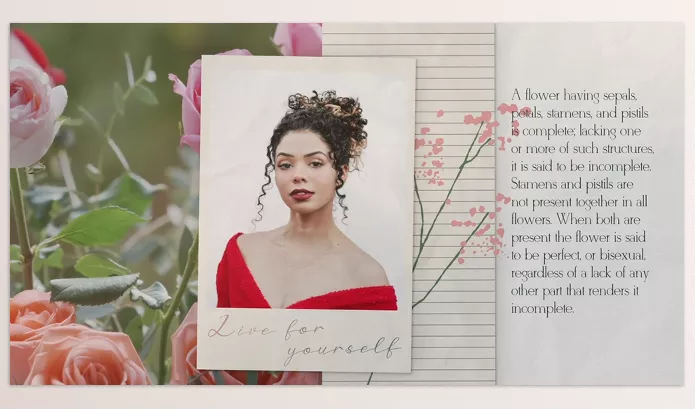 Live for
yourself
A flower having sepals,
petals, stamens, and pistils
is complete; lacking one
or more of such structures,
it is said to be incomplete.
Stamens and pistils are
not present together in all
flowers. When both are
present the flower is said
to be perfect, or bisexual,
regardless of a lack of any
other part that renders it
incomplete.